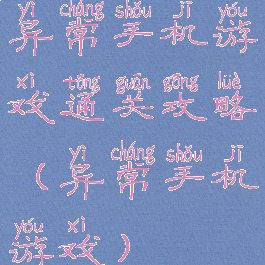 yì cháng shǒu jī yóu
异常手机游
xì tōng guān gōng lüè
戏通关攻略
yì cháng shǒu jī
（异常手机
yóu xì
游戏）